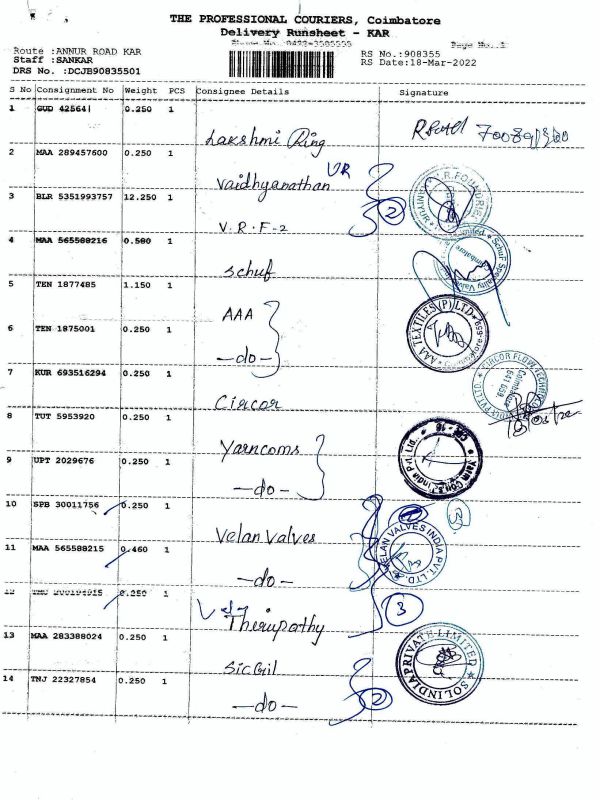 THE PROFESSIONAL COURIERS, Coimbatore
Delivery Runsheet - KAR
Page No. 1
Route :ANNUR ROAD KAR
Staff :SANKAR
DRS No. :DCJB90835501
RS No.:908355
RS Date:18-Mar-2022
S No Consignment No Weight PCS Consignee Details Signature
1 GUD 42564 0.250 1
Lakshmi Ring
2 MAA 289457600 0.250 1
Vaidhyanathan VR
3 BLR 5351993757 12.250 1
V.R.F-2 2
4 MAA 565588216 0.580 1
Schuf
5 TEN 1877485 1.150 1
AAA
AAA TEXTILES (P) LTD
6 TEN 1875001 0.250 1
-do-
7 KUR 693516294 0.250 1
Circor
8 TUT 5953920 0.250 1
Yarncoms
9 UPT 2029676 0.250 1
-do-
10 SPB 30011756 0.250 1
Velan Valves
VELAN VALVES INDIA PVT. LTD.
11 MAA 565588215 0.460 1
-do-
12 0.250 1
Thirupathy 3
13 MAA 283388024 0.250 1
SicGil
SOLINDIA PRIVATE LIMITED
14 TNJ 22327854 0.250 1
-do- 2